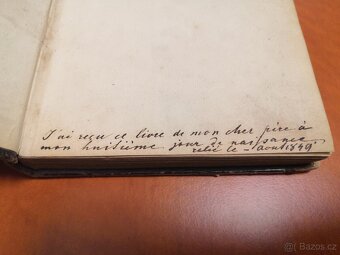 J'ai reçu ce livre de mon cher père à
mon huitième jour de naissance
relié le - Août 1849
bazos.cz